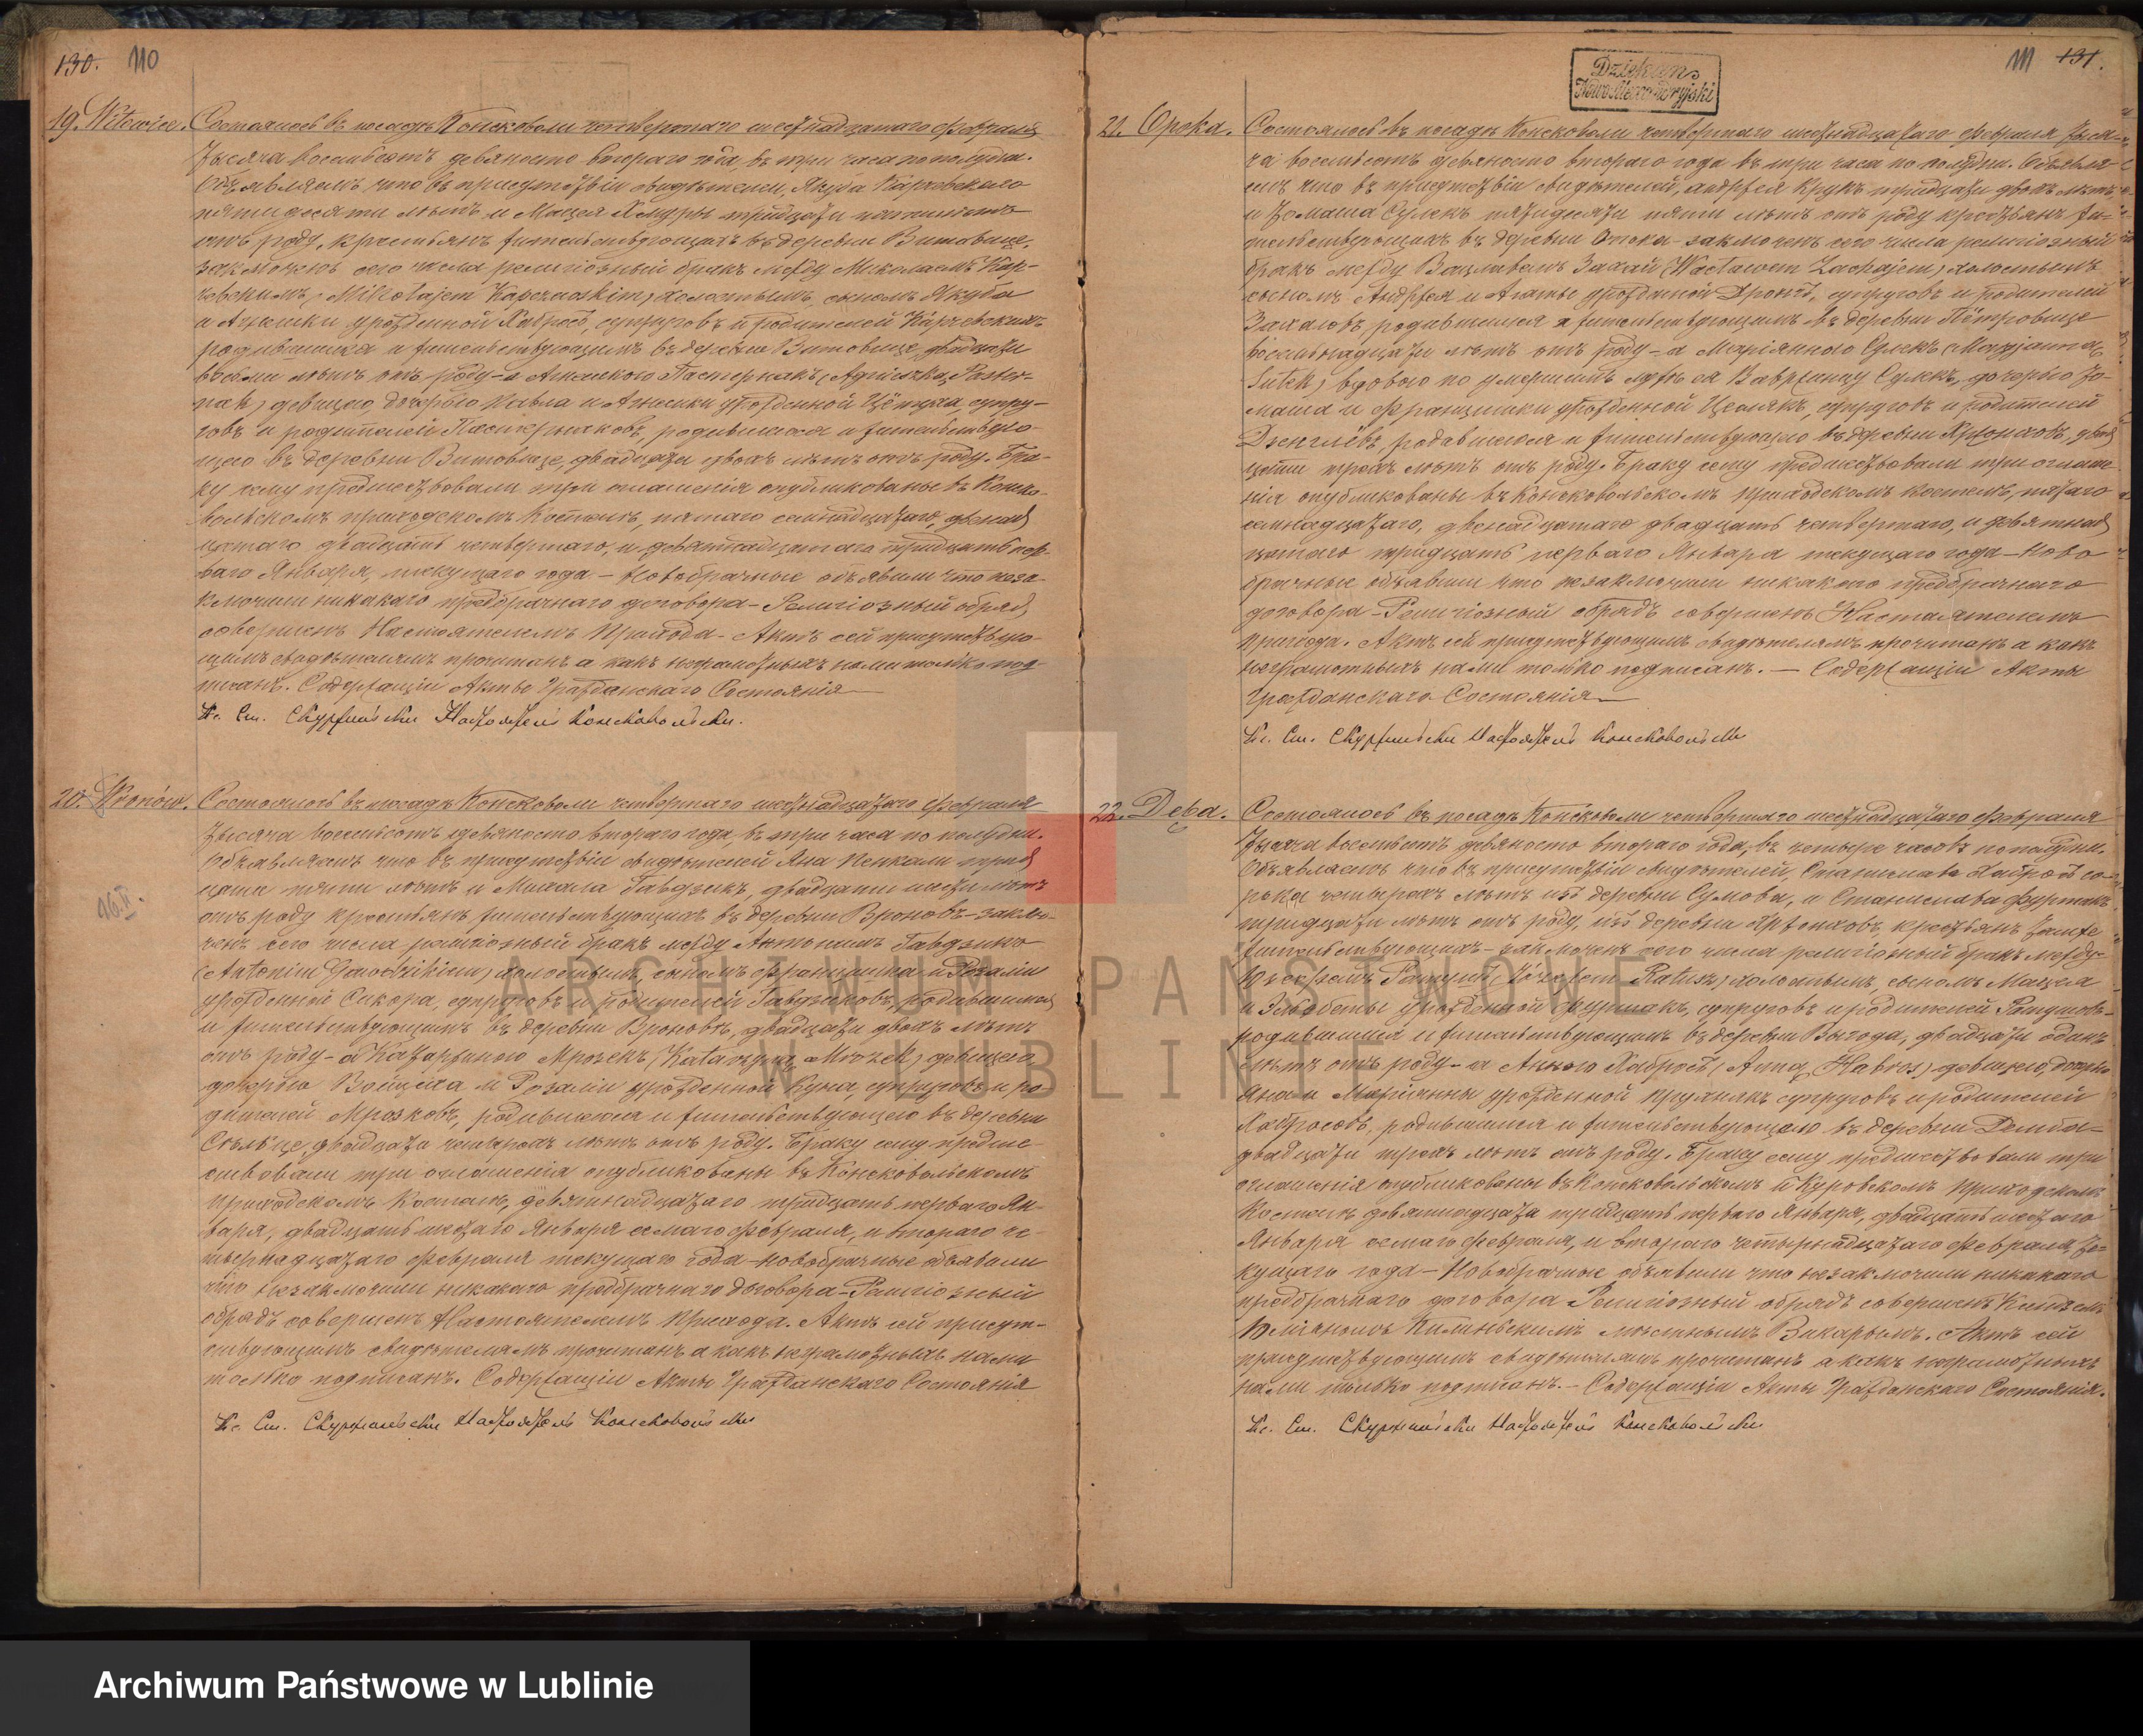 130. 110
19. Witowice. Состоялось въ посадѣ Консковоли четвертаго шестнадцатаго Февраля
тысяча восемьсотъ девяносто втораго года, въ три часа по полудни.
Объявляемъ что въ присутствіи свидѣтелей, Якуба Карчевскаго
пятидесяти лѣтъ и Мацея Хмуры тридцати
отъ роду, крестьянъ жительствующихъ въ деревни Витовице,
заключенъ сего числа религіозный бракъ между Миколаемъ Кар-
чевскимъ, Mikołajem Karczewskim, холостымъ, сыномъ Якуба
и Агнешки урожденной Хабросъ, супруговъ и родителей Карчевскихъ
родившимся и жительствующимъ въ деревни Витовице, двадцати
восьми лѣтъ отъ роду – а Агнешкою Пастернакъ (Agnieszką Paster-
nak) девицею, дочерью Павла и Агнешки урожденной супру-
говъ и родителей Пастернаковъ, родившеюся и жительствую-
щею въ деревни Витовице, двадцати двохъ лѣтъ отъ роду. Бра-
ку сему предшествовали три оглашенія опубликованы въ Конско-
вольскомъ приходскомъ Костелѣ, пятаго семнадцатаго, двенад
цатаго двадцать четвертаго, и девятнадцатаго тридцать пер-
ваго Января, текущаго года – Новобрачные объявили что неза-
ключили никакаго предбрачнаго договора – Религіозный обрядъ
совершенъ Настоятелемъ Прихода. Актъ сей присутствую-
щимъ свидѣтелямъ прочитанъ а какъ неграмотныхъ нами только под-
писанъ. Содержащій Акты Гражданскаго Состоянія
Кс. Ст. Скуржиньски Настоятель Консковольски.
20. Wronów. Состоялось въ посадѣ Консковоли четвертаго шестнадцатаго Февраля
тысяча восемьсотъ девяносто втораго года, въ три часа по полудни.
Объявляемъ что въ присутствіи свидѣтелей Яна Пенкали трид
цати пяти лѣтъ и Михала Гавдзикъ, двадцати шести лѣтъ
отъ роду крестьянъ, жительствующихъ въ деревни Вроновъ – заклю-
ченъ сего числа религіозный бракъ между Антонимъ Гавдзикъ
(Antonim Gawdzikiem) холостымъ, сыномъ Францишка и Розаліи
урожденной Сикора, супруговъ и родителей Гавдзиковъ, родившимся
и жительствующимъ въ деревни Вроновъ, двадцати двохъ лѣтъ
отъ роду – а Катаржиною Мрозекъ, (Katarzyną Mrozek) девицею
дочерью Войцеха и Розаліи урожденной Куна, супруговъ и ро
дителей Мрозковъ, родившеюся и жительствующею въ деревни
двадцати четырохъ лѣтъ отъ роду. Браку сему предше-
ствовали три оглашенія опубликованы въ Консковольскомъ
приходскомъ Костелѣ, девятнадцатаго тридцать перваго Ян-
варя, двадцать шестаго Января семаго Февраля, и втораго че-
тырнадцатаго Февраля текущаго года – новобрачные объявили
что незаключили никакаго предбрачнаго договора – Религіозный
обрядъ совершенъ Настоятелемъ Прихода. Актъ сей присут-
ствующимъ свидѣтелямъ прочитанъ а какъ неграмотныхъ нами
только подписанъ. Содержащій Акты Гражданскаго Состоянія
Кс. Ст. Скуржиньски Настоятель Консковольски
16.II.
111 131.
Dziekan
Nowo Alexandryjski
21. Opoka. Состоялось въ посадѣ Консковоли четвертаго шестнадцатаго Февраля тыся-
ча восемьсотъ девяносто втораго года въ три часа по полудни. Объявля
емъ что въ присутствіи свидѣтелей, Андржея Крукъ тридцати двохъ лѣтъ,
и Томаша Сулекъ пятидесяти пяти лѣтъ отъ роду крестьянъ жи-
тельствующихъ въ деревни Опока – заключенъ сего числа религіозный
бракъ между Вацлавомъ Захай (Wacławem Zachajem) холостымъ
сыномъ Андржея и Агаты урожденной супруговъ и родителей
Захаювъ родившимся и жительствующимъ въ деревни Пётровице
восемьнадцати лѣтъ отъ роду – а Маріянною Сулекъ (Marjanną
Sulek) вдовою по умершимъ мужѣ ея Вавржинцу Сулекъ, дочерью То-
маша и Францишки урожденной супруговъ и родителей
родившеюся и жительствующею въ деревни двад
цати трохъ лѣтъ отъ роду. Браку сему предшествовали три оглаше-
нія опубликованы въ Консковольскомъ приходскомъ костелѣ, пятаго
семнадцатаго, двенадцатаго двадцать четвертаго, и девятнад
цатаго тридцать перваго Января текущаго года – Ново
брачные объявили что незаключили никакаго предбрачнаго
договора – Религіозный обрядъ совершенъ Настоятелемъ
прихода. Актъ сей присутствующимъ свидѣтелямъ прочитанъ а какъ
неграмотныхъ нами только подписанъ. – Содержащій Акты
Гражданскаго Состоянія
Кс. Ст. Скуржиньски Настоятель Консковольски
22. Dęba. Состоялось въ посадѣ Консковоли четвертаго шестнадцатаго Февраля
тысяча восемьсотъ девяносто втораго года, въ четыре часовъ по полудни.
Объявляемъ что въ присутствіи свидѣтелей, Станислава Хабросъ со-
рока четырохъ лѣтъ изъ деревни и Станислава Фуртакъ
тридцати лѣтъ отъ роду, изъ деревни крестьянъ тамже
жительствующихъ – заключенъ сего числа религіозный бракъ между
Юзефемъ Ратушъ (Józefem Ratusz) холостымъ, сыномъ Мацея
и Эльжбеты урожденной супруговъ и родителей Ратушовъ
родившимся и жительствующимъ въ деревни Выгода, двадцати одинъ
лѣтъ отъ роду – а Анною Хабросъ (Anną Habros) девицею, дочерью
Яна и Маріянны урожденной супруговъ и родителей
Хабросовъ, родившеюся и жительствующею въ деревни Демба –
двадцати трохъ лѣтъ отъ роду. Браку сему предшествовали три
оглашенія опубликованы въ Консковольскомъ и Куровскомъ приходскомъ
Костелѣ девятнадцатаго тридцать перваго Января, двадцать шестаго
Января семаго Февраля, и втораго четырнадцатаго Февраля те-
кущаго года – Новобрачные объявили что незаключили никакаго
предбрачнаго договора Религіозный обрядъ совершенъ Ксендземъ
мѣстнымъ Викарымъ. Актъ сей
присутствующимъ свидѣтелямъ прочитанъ а какъ неграмотныхъ
нами только подписанъ. – Содержащій Акты Гражданскаго Состоянія.
Кс. Ст. Скуржиньски Настоятель Консковольски
ARCHIWUM PAŃSTWOWE
W LUBLINIE
Archiwum Państwowe w Lublinie